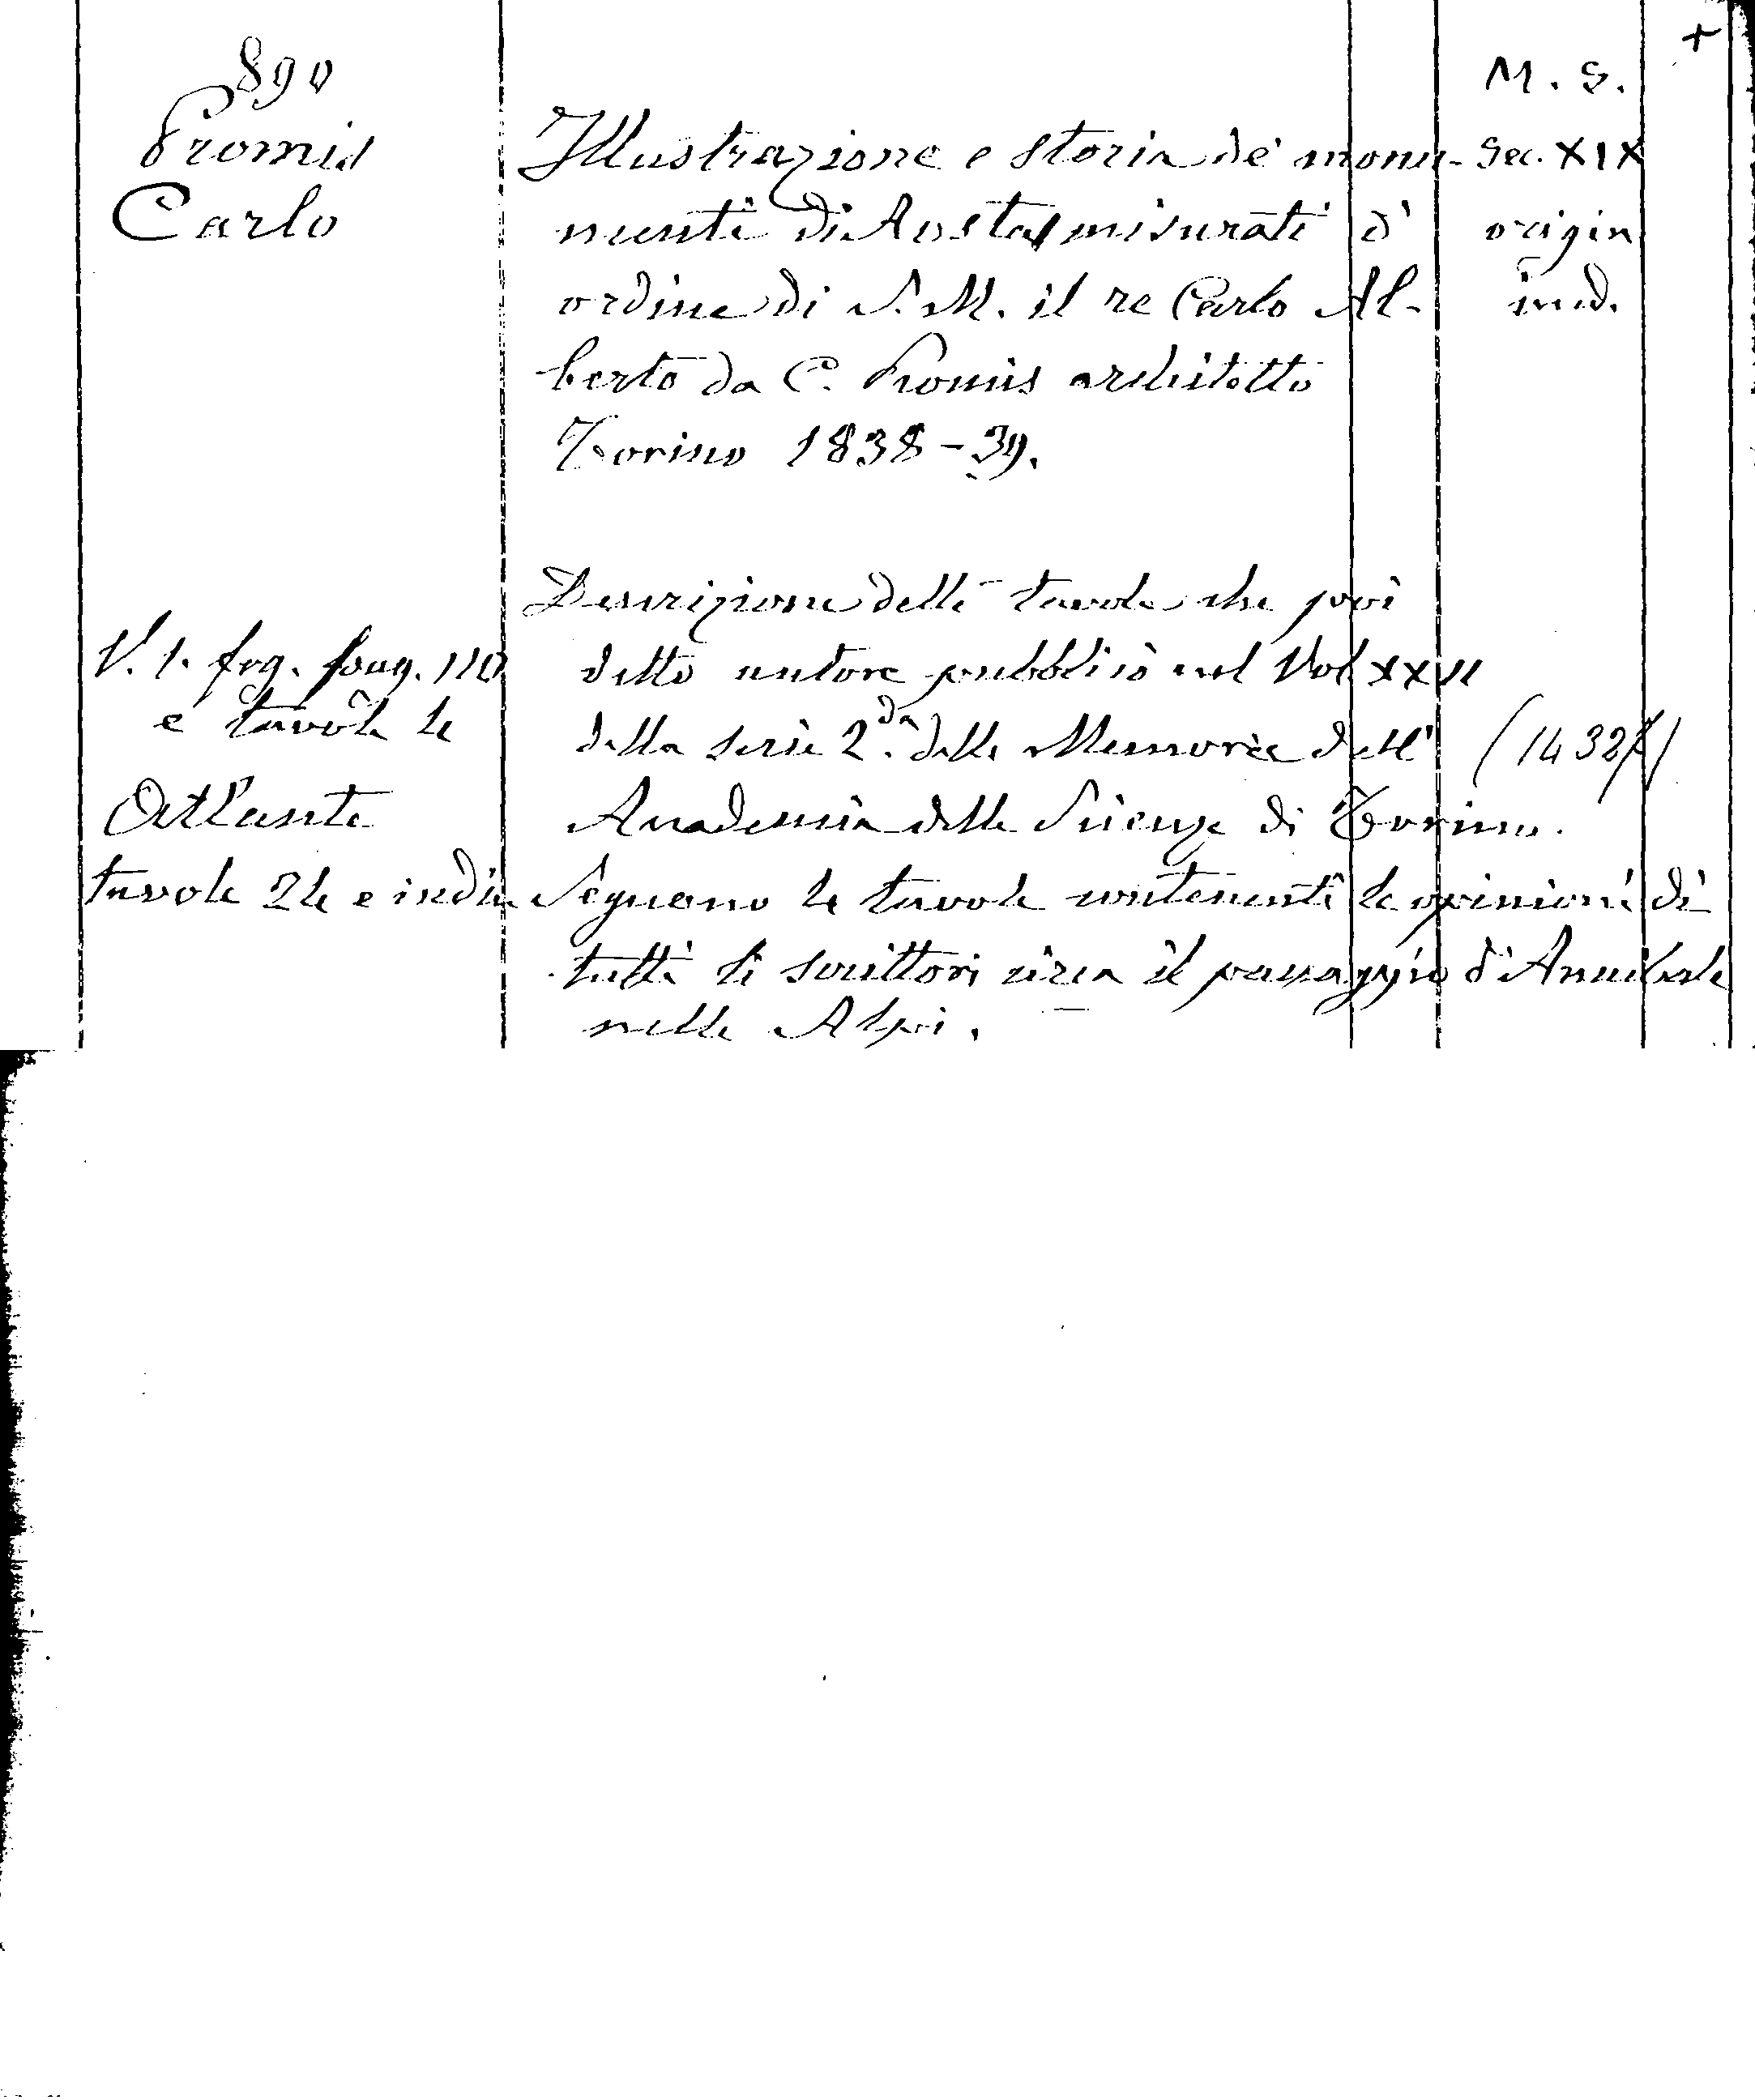 890
Promis
Carlo
Illustrazione e storia de' monu-
menti di Aosta misurati d'
ordine di S. M. il re Carlo Al-
berto da C. Promis architetto
Torino 1838-39.
M. S.
Sec. XIX
origin
ined.
V. 1. fog. pag. 110
e tavole
Atlante
tavole 24 e indice
Descrizione delle tavole che poi
detto autore pubblicò nel Vol
della serie 2.da delle Memorie dell'
Accademia delle Scienze di Torino.
Seguono le tavole contenenti le opinioni di
tutti li scrittori circa il passaggio d'Annibale
nelle Alpi.